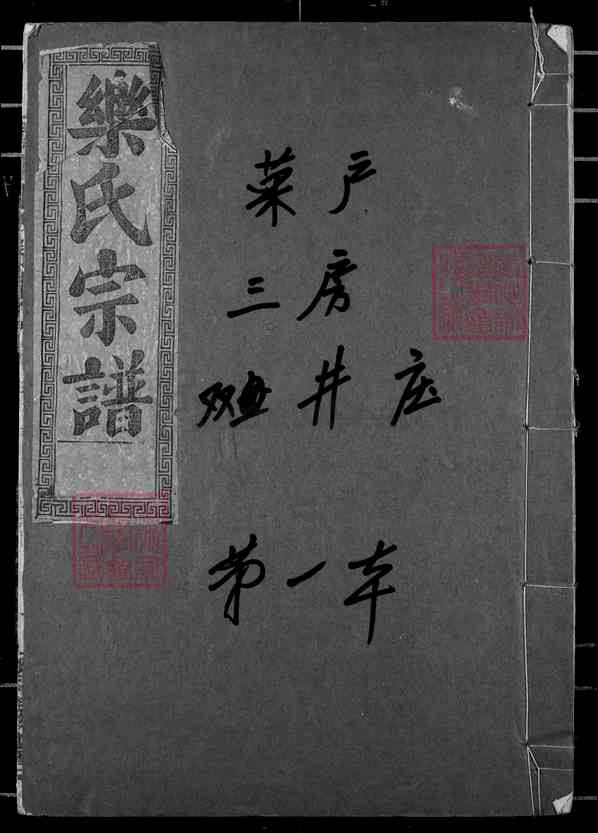 樂氏宗譜
菜户
三房
双井庄
第一本